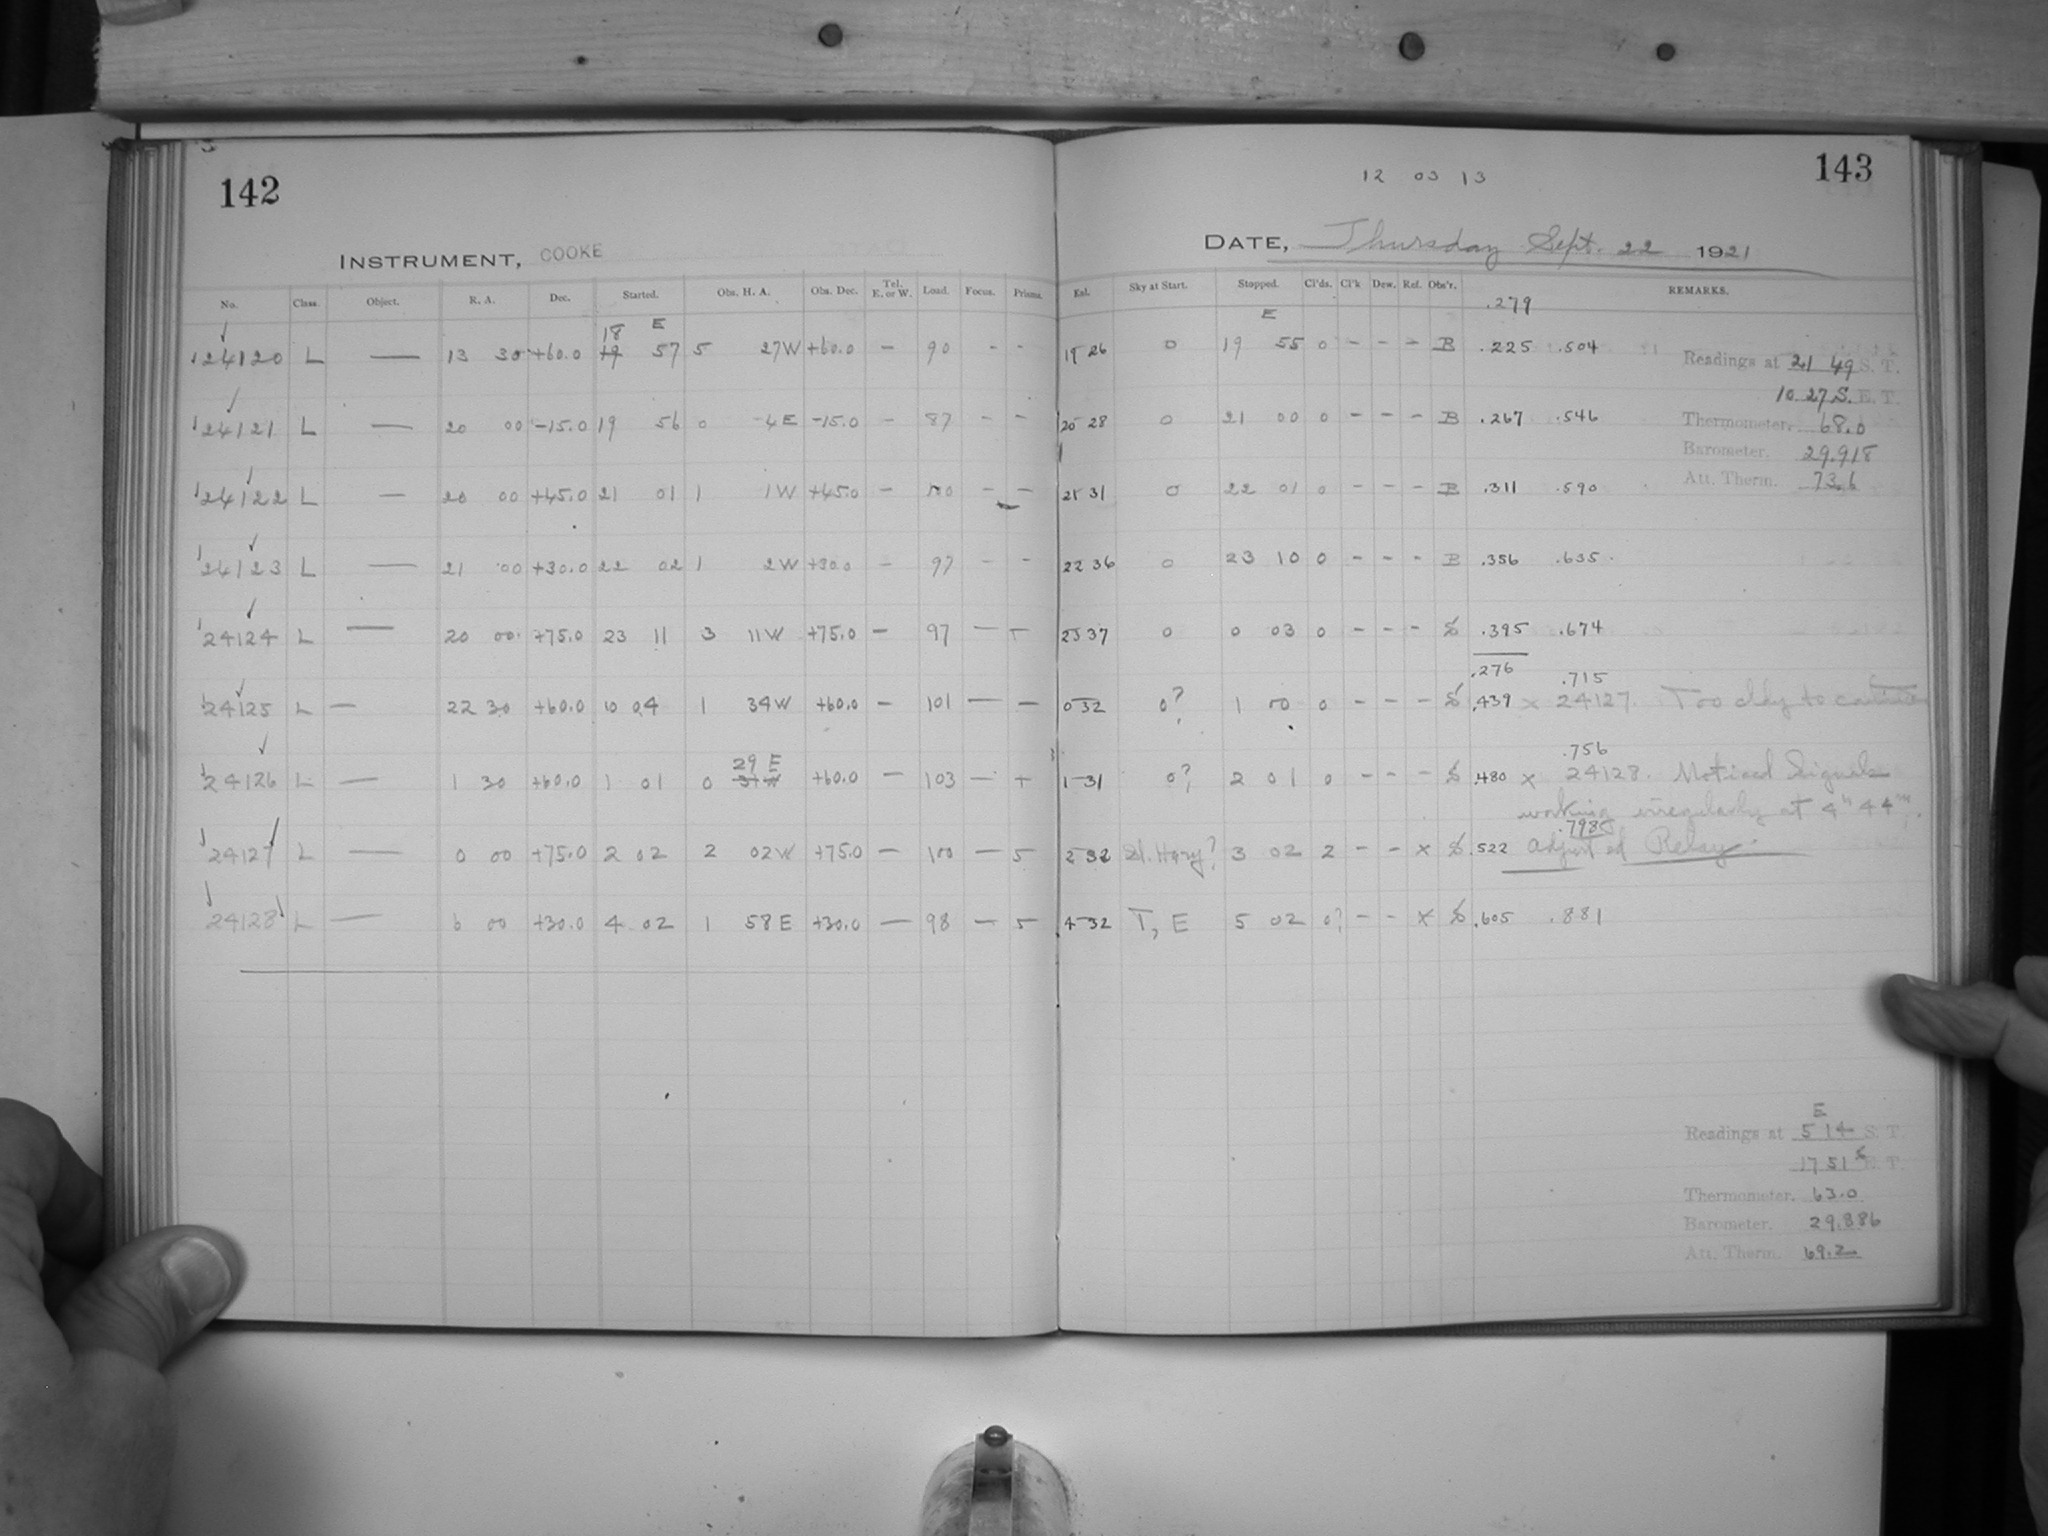 142
INSTRUMENT, COOKE
No. Class. Object. R. A. Dec. Started. Obs. H. A. Obs. Dec. Tel. E. or W. Load. Focus. Prisms.
18 E
24120 L — 13 30 +60.0 19 57 5 27W +60.0 — 90 - -
24121 L — 20 00 -15.0 19 56 0 4E -15.0 — 87 - -
24122 L — 20 00 +45.0 21 01 1 1W +45.0 — 100 - -
24123 L — 21 00 +30.0 22 02 1 2W +30.0 — 97 - -
24124 L — 20 00 +75.0 23 11 3 11W +75.0 — 97 —
24125 L — 22 30 +60.0 10 04 1 34W +60.0 — 101 — —
29 E
24126 L — 1 30 +60.0 1 01 0 31 W +60.0 — 103 —
24127 L — 0 00 +75.0 2 02 2 02W +75.0 — 100 — 5
24128 L — 6 00 +30.0 4 02 1 58E +30.0 — 98 — 5
12 03 13
143
DATE, Thursday Sept. 22 1921
Sky at Start. Stopped. Cl'ds. Cl'k Dew. Ref. Obs'r. REMARKS.
.279
E
19 26 0 19 55 0 - - - B .225 .504
Readings at 21 49 S. T.
10.27 S. E. T.
20 28 0 21 00 0 - - - B .267 .546
Thermometer. 68.0
Barometer. 29.918
Att. Therm. 73.6
21 31 0 22 01 0 - - - B .311 .590
22 36 0 23 10 0 - - - B .356 .635
23 37 0 0 03 0 - - - .395 .674
.276
.715
0 32 0? 1 00 0 - - - .439 x 24127. Too cldy to continue
.756
1-31 0? 2 01 0 - - - .480 x 24128. Noticed Signals
working irregularly at 4h 44m.
.798
2 32 Sl. Hazy? 3 02 2 - - x .522 adjusted Relay.
4-32 T, E 5 02 0? - - x .605 .881
E
Readings at 5 14 S. T.
17 51 S E. T.
Thermometer. 63.0
Barometer. 29.886
Att. Therm. 69.2